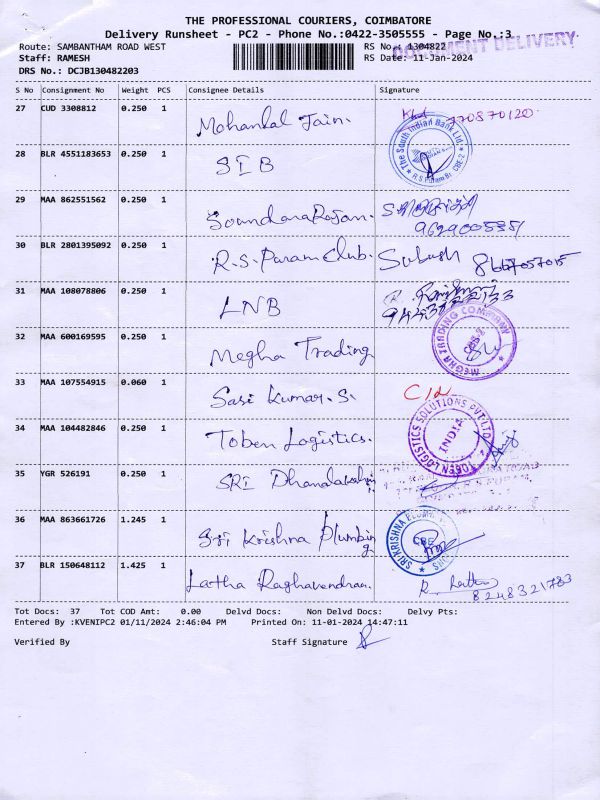 THE PROFESSIONAL COURIERS, COIMBATORE
Delivery Runsheet - PC2 - Phone No.:0422-3505555 - Page No.:3
Route: SAMBANTHAM ROAD WEST RS No.: 1304822
DOCUMENT DELIVERY
Staff: RAMESH RS Date: 11-Jan-2024
DRS No.: DCJB130482203
S No Consignment No Weight PCS Consignee Details Signature
27 CUD 3308812 0.250 1 Mohanlal Jain. 770870120
28 BLR 4551183653 0.250 1 SIB The South Indian Bank Ltd
29 MAA 862551562 0.250 1 SoundaraRajan.
30 BLR 2801395092 0.250 1 R.S. Puram Club. Subash 8667057015
31 MAA 108078806 0.250 1 LNB
32 MAA 600169595 0.250 1 Megha Trading MEGHA TRADING COMPANY
33 MAA 107554915 0.060 1 Sasi Kumar. S.
34 MAA 104482846 0.250 1 Toben Logistics. TOBEN LOGISTICS SOLUTIONS PVT LTD INDIA
35 YGR 526191 0.250 1 SRI
36 MAA 863661726 1.245 1 Sri Krishna Plumbing SRI KRISHNA CBE
37 BLR 150648112 1.425 1 Latha Raghavendran. 8248321783
Tot Docs: 37 Tot COD Amt: 0.00 Delvd Docs: Non Delvd Docs: Delvy Pts:
Entered By :KVENIPC2 01/11/2024 2:46:04 PM Printed On: 11-01-2024 14:47:11
Verified By Staff Signature